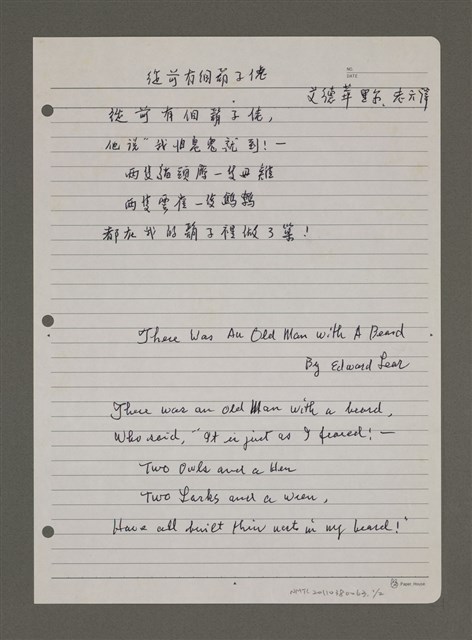 從前有個鬍子佬
NO.
DATE
艾德華 里尔、
從前有個鬍子佬,
他說"我怕
兩隻貓頭鷹一隻母雞
兩隻雲雀一隻鷦鷯
都在我的鬍子裡做了巢!
There Was An Old Man with A Beard
By Edward Lear
There was an old Man with a beard,
Who said, "It is just as I feared! —
Two Owls and a Hen
Two Larks and a Wren,
Have all built their nests in my beard!"
Paper House